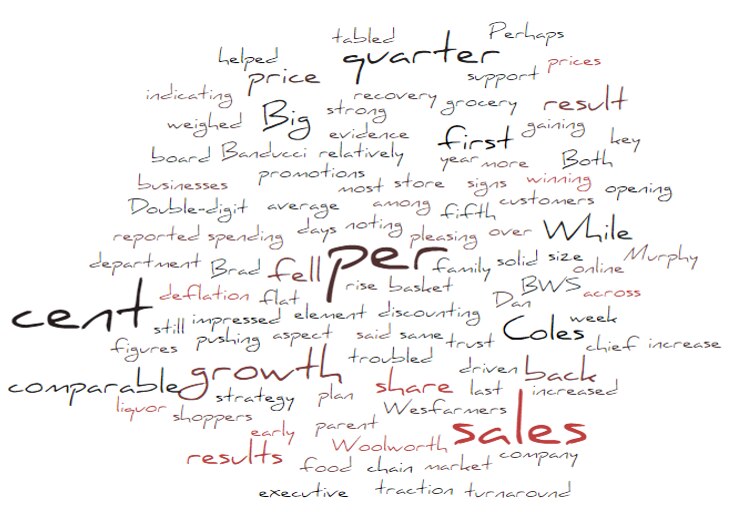 tabled Perhaps
helped quarter
price support prices
indicating recovery grocery result
weighed Big strong gaining
evidence first key
board Banducci relatively year more Both
promotions
businesses most store signs winning opening
Double-digit average among fifth customers
reported spending days noting pleasing over While
department Brad fell per family solid size online Murphy
cent deflation flat rise basket Dan BWS across
still impressed element discounting Coles week
figures pushing aspect said same trust chief increase
troubled
comparable growth driven back
strategy plan share last increased
liquor shoppers Wesfarmers
early parent sales
results Woolworth company
food chain market
executive traction turnaround